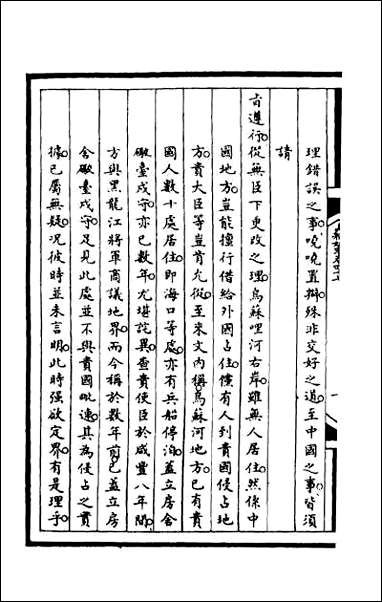 理錯誤之事嘵嘵置辯殊非交好之道至中國之事皆須
請
旨遵行從無臣下更改之理烏蘇哩河右岸雖無人居住然係中
國地方豈能擅行借給外國占住僅有人到貴國侵占地
方貴大臣等豈肯允從至來文內稱烏蘇河地方已有貴
國人數十處居住即海口等處亦有兵船停泊蓋立房舍
礮臺戍守亦已數年尤堪詫異查貴使臣於咸豐八年間
方與黑龍江將軍商議地界而今稱於數年前已蓋立房
舍礮臺戍守足見此處並不與貴國毗連其為侵占之實
據已屬無疑况彼時並未言明此時强欲定界有是理乎